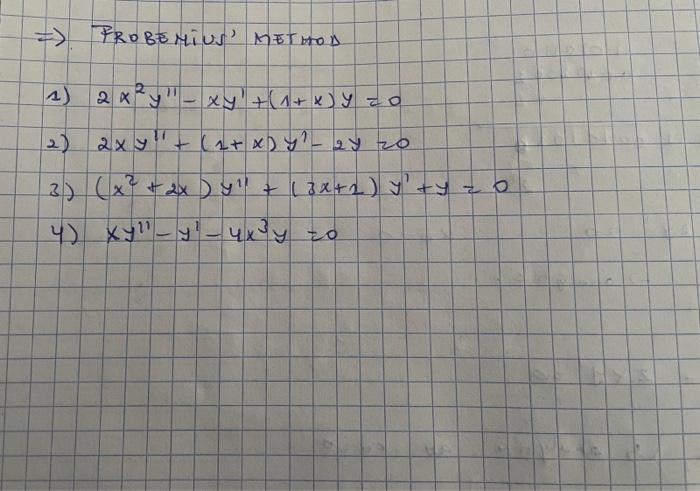 => FROBENIUS' METHOD
1) 2x²y'' - xy' + (1+x)y = 0
2) 2xy'' + (1+x)y' - 2y = 0
3) (x² + 2x)y'' + (3x+1)y' + y = 0
4) xy'' - y' - 4x³y = 0